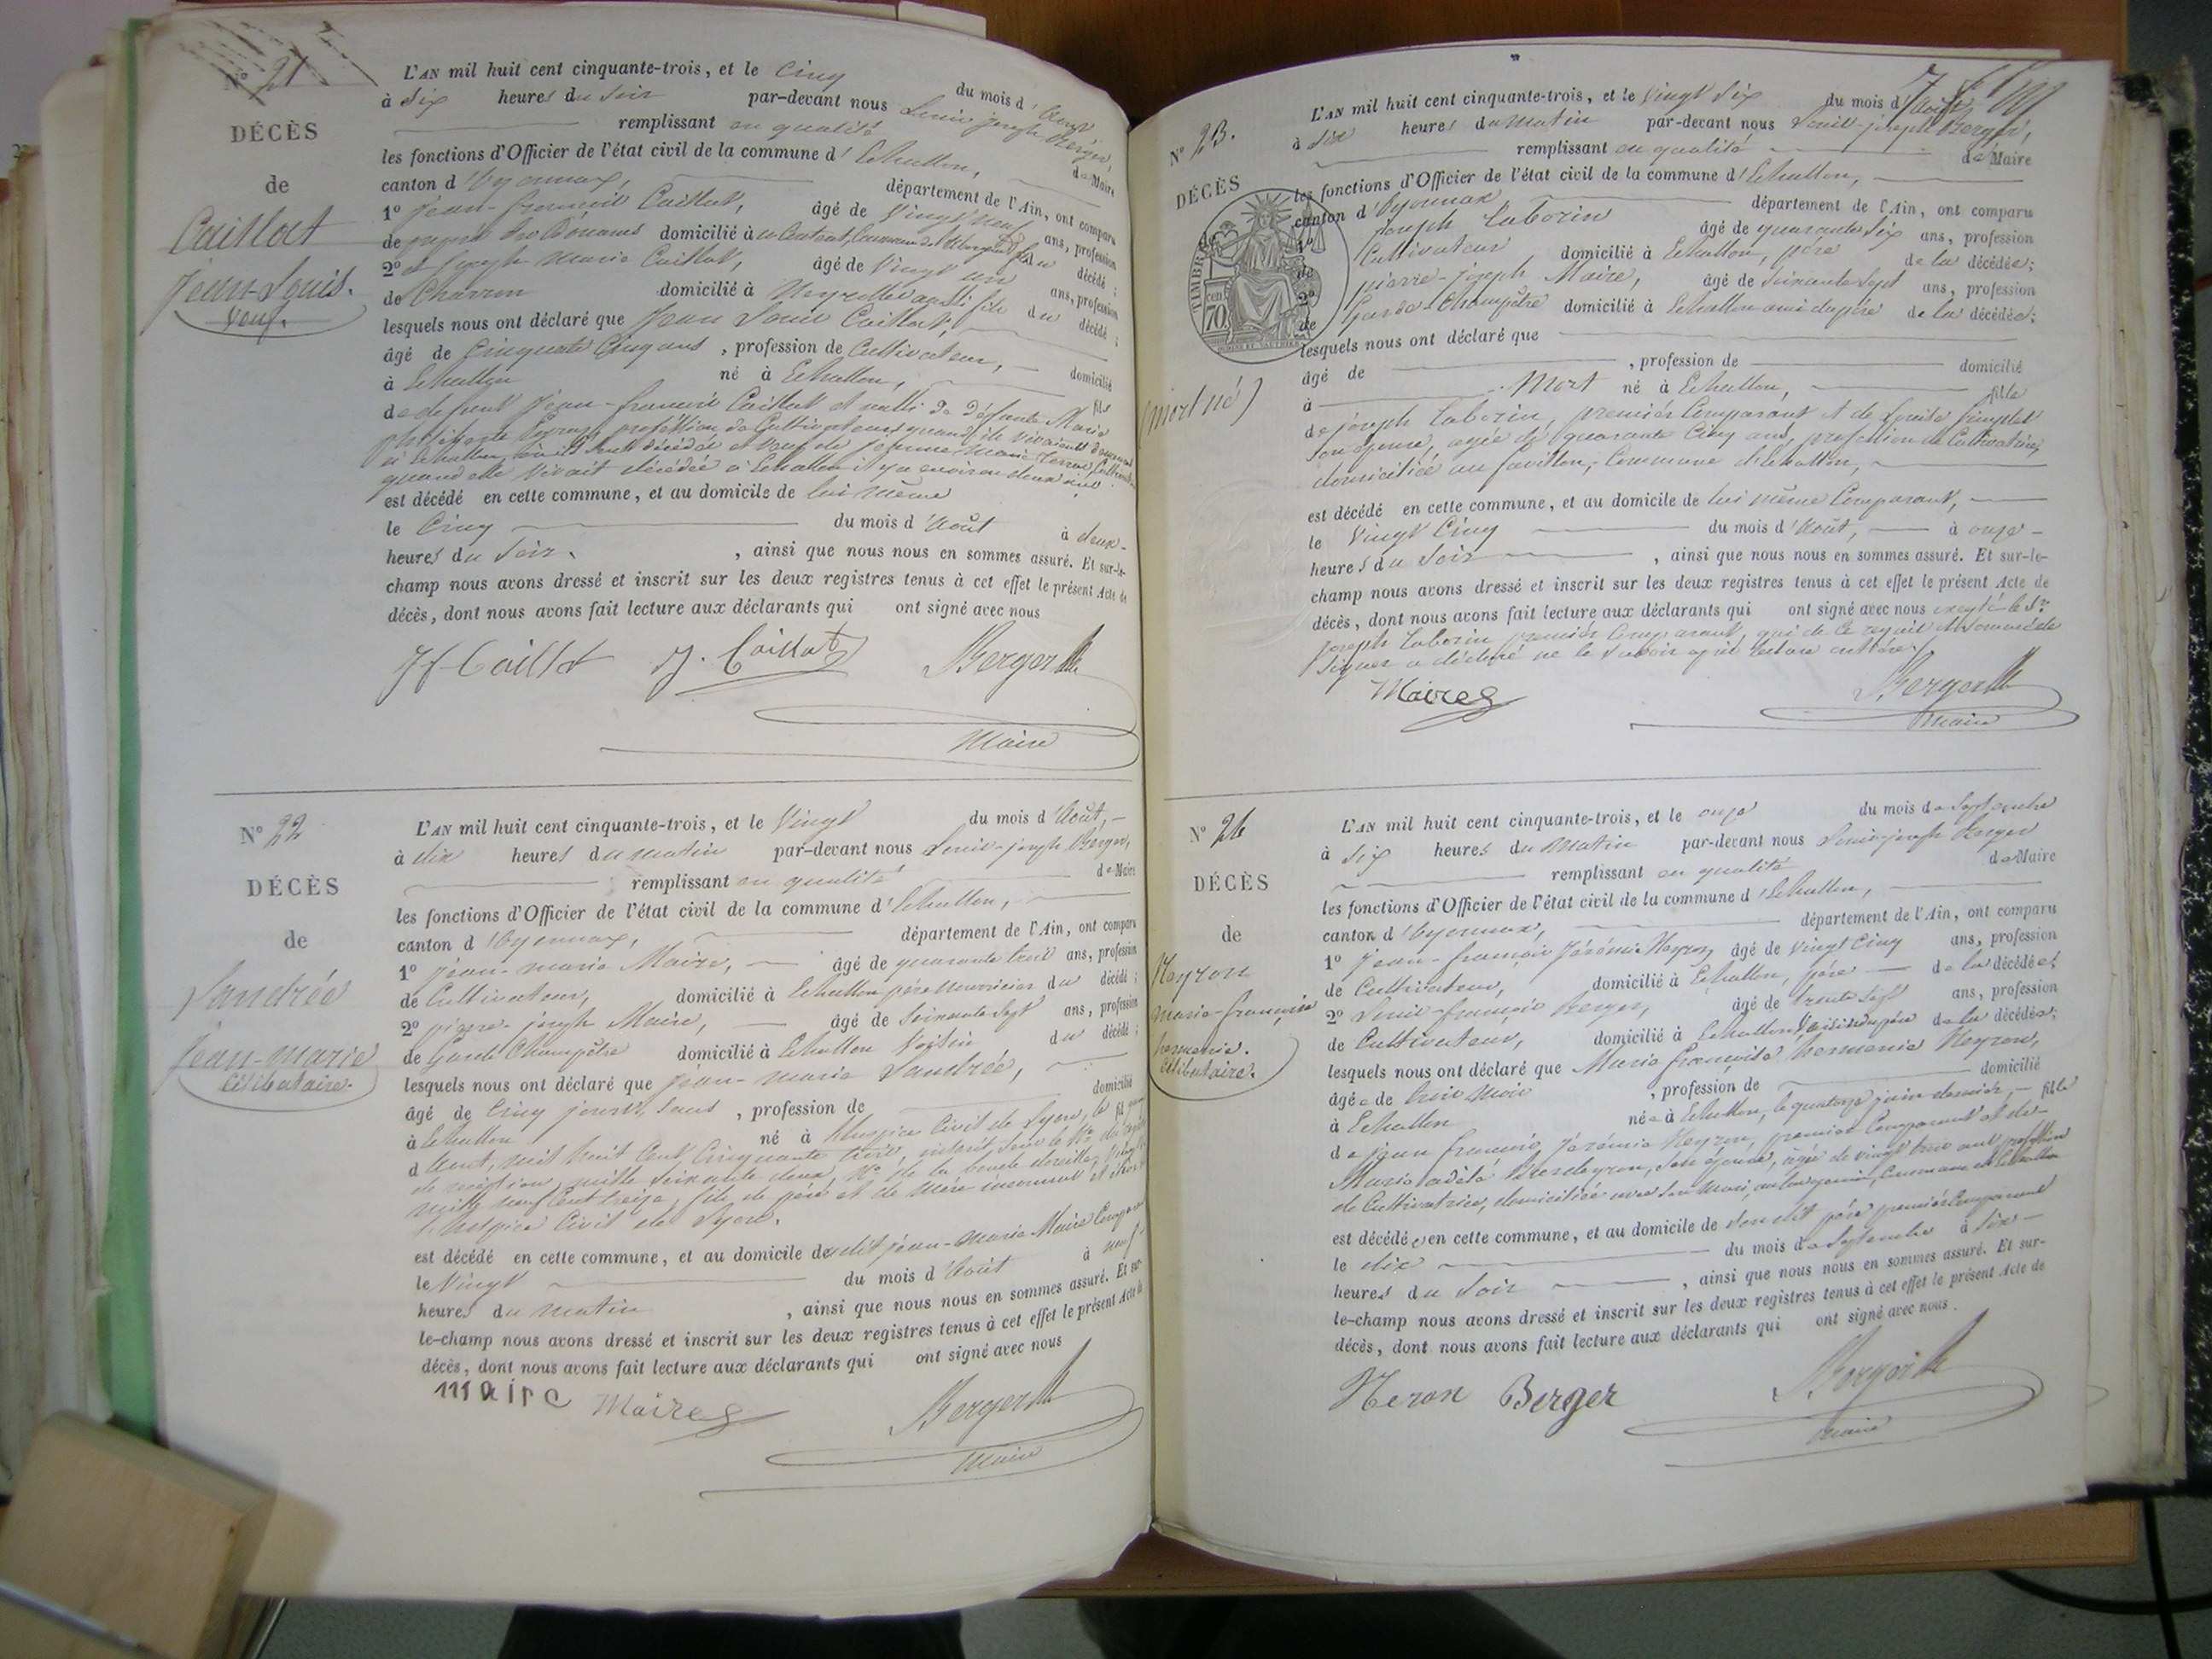 N° 21
DÉCÈS
de
Caillat
Jean-Louis.
Veuf.
L'AN mil huit cent cinquante-trois, et le Cinq du mois d'Août
à Six heures du Soir par-devant nous Louis joseph Berger,
remplissant en qualité de Maire
les fonctions d'Officier de l'état civil de la commune d'Echallon,
canton d'Oyonnax, département de l'Ain, ont comparu
1° Jean-françois Caillat, âgé de Vingt neuf ans, profession
de préposé des Douanes domicilié à fils du décédé ;
2° et Joseph Marie Caillat, âgé de Vingt un ans, profession
de Charron domicilié à Neyrolles aussi fils du décédé ;
lesquels nous ont déclaré que Jean Louis Caillat,
âgé de Cinquante Cinq ans, profession de Cultivateur, domicilié
à Echallon né à Echallon, fils
de defunt Jean-françois Caillat et de Défunte Marie
profession de Cultivateurs quand ils vivaient
à Echallon, où ils sont décédés et veuf de Marie
quand elle vivait décédée à Echallon il y a environ deux ans
est décédé en cette commune, et au domicile de lui même
le Cinq du mois d'Août à deux
heures du Soir, ainsi que nous nous en sommes assuré. Et sur-le-
champ nous avons dressé et inscrit sur les deux registres tenus à cet effet le présent Acte de
décès, dont nous avons fait lecture aux déclarants qui ont signé avec nous
Jf Caillat J. Caillat Berger
Maire
N° 22
DÉCÈS
de
Landrée
Jean-marie
Célibataire.
L'AN mil huit cent cinquante-trois, et le Vingt du mois d'Août,
à dix heures du matin par-devant nous Louis-joseph Berger,
remplissant en qualité de Maire
les fonctions d'Officier de l'état civil de la commune d'Echallon,
canton d'Oyonnax, département de l'Ain, ont comparu
1° Jean-marie Maire, âgé de quarante trois ans, profession
de Cultivateur, domicilié à Echallon père nourricier du décédé ;
2° pierre-joseph Maire, âgé de Soixante Sept ans, profession
de Garde Champêtre domicilié à Echallon Voisin du décédé ;
lesquels nous ont déclaré que Jean-marie Landrée,
âgé de Cinq jours, sans, profession de domicilié
à Echallon né à l'hospice Civil de Lyon, le
d'Août, mil huit Cent Cinquante trois, inscrit sous le N° du
de réception, mille Soixante deux, N° de la boucle d'oreille,
mille neuf Cent treize, fils de père et de mère inconnus
l'hospice Civil de Lyon.
est décédé en cette commune, et au domicile dudit jean-marie Maire
le Vingt du mois d'Août à neuf
heures du matin, ainsi que nous nous en sommes assuré. Et sur-
le-champ nous avons dressé et inscrit sur les deux registres tenus à cet effet le présent Acte de
décès, dont nous avons fait lecture aux déclarants qui ont signé avec nous
maire Maire Berger
Maire
N° 23.
DÉCÈS
de
TIMBRE
70
(Mort né)
L'AN mil huit cent cinquante-trois, et le Vingt Six du mois d'Août,
à dix heures du Matin par-devant nous Louis-joseph Berger,
remplissant en qualité de Maire
les fonctions d'Officier de l'état civil de la commune d'Echallon,
canton d'Oyonnax département de l'Ain, ont comparu
1° Joseph Taborin âgé de quarante Six ans, profession
de Cultivateur, domicilié à Echallon, père de la décédée ;
2° pierre-joseph Maire, âgé de Soixante Sept ans, profession
de Garde-Champêtre domicilié à Echallon ami du père de la décédée ;
lesquels nous ont déclaré que
âgé de, profession de domicilié
à Mort né à Echallon, fille
de joseph Taborin, premier Comparant et de Louise
son épouse, agée de quarante Cinq ans, profession de Cultivatrice,
domiciliée au favillon, Commune d'Echallon,
est décédé en cette commune, et au domicile de lui même Comparant,
le Vingt Cinq du mois d'Août, à onze
heures du Soir, ainsi que nous nous en sommes assuré. Et sur-le-
champ nous avons dressé et inscrit sur les deux registres tenus à cet effet le présent Acte de
décès, dont nous avons fait lecture aux déclarants qui ont signé avec nous excepté le Sr
joseph Taborin premier Comparant, qui de Ce requis et sommé de
Signer a déclaré ne le savoir après lecture
Maire Berger
Maire
N° 24
DÉCÈS
de
Neyron
Marie-françoise
hermanie.
Célibataire.
L'AN mil huit cent cinquante-trois, et le onze du mois de Septembre
à Six heures du Matin par-devant nous Louis-joseph Berger
remplissant en qualité de Maire
les fonctions d'Officier de l'état civil de la commune d'Echallon,
canton d'Oyonnax, département de l'Ain, ont comparu
1° Jean-françois Jérémie Neyron, âgé de Vingt Cinq ans, profession
de Cultivateur, domicilié à Echallon, père de la décédée ;
2° Louis-françois Berger, âgé de trente Sept ans, profession
de Cultivateur, domicilié à Echallon, Voisin du père de la décédée ;
lesquels nous ont déclaré que Marie françoise hermanie Neyron,
âgée de trois Mois, profession de domicilié
à Echallon née à Echallon, le quatorze juin dernier, fille
de jean françois Jérémie Neyron, premier Comparant et de
Marie adèle son épouse, agée de vingt trois ans profession
de Cultivatrice, domiciliée avec son Mari, Commune d'Echallon
est décédée en cette commune, et au domicile de son dit père premier Comparant
le dix du mois de Septembre à Six
heures du Soir, ainsi que nous nous en sommes assuré. Et sur-
le-champ nous avons dressé et inscrit sur les deux registres tenus à cet effet le présent Acte de
décès, dont nous avons fait lecture aux déclarants qui ont signé avec nous.
Neron Berger Berger
Maire